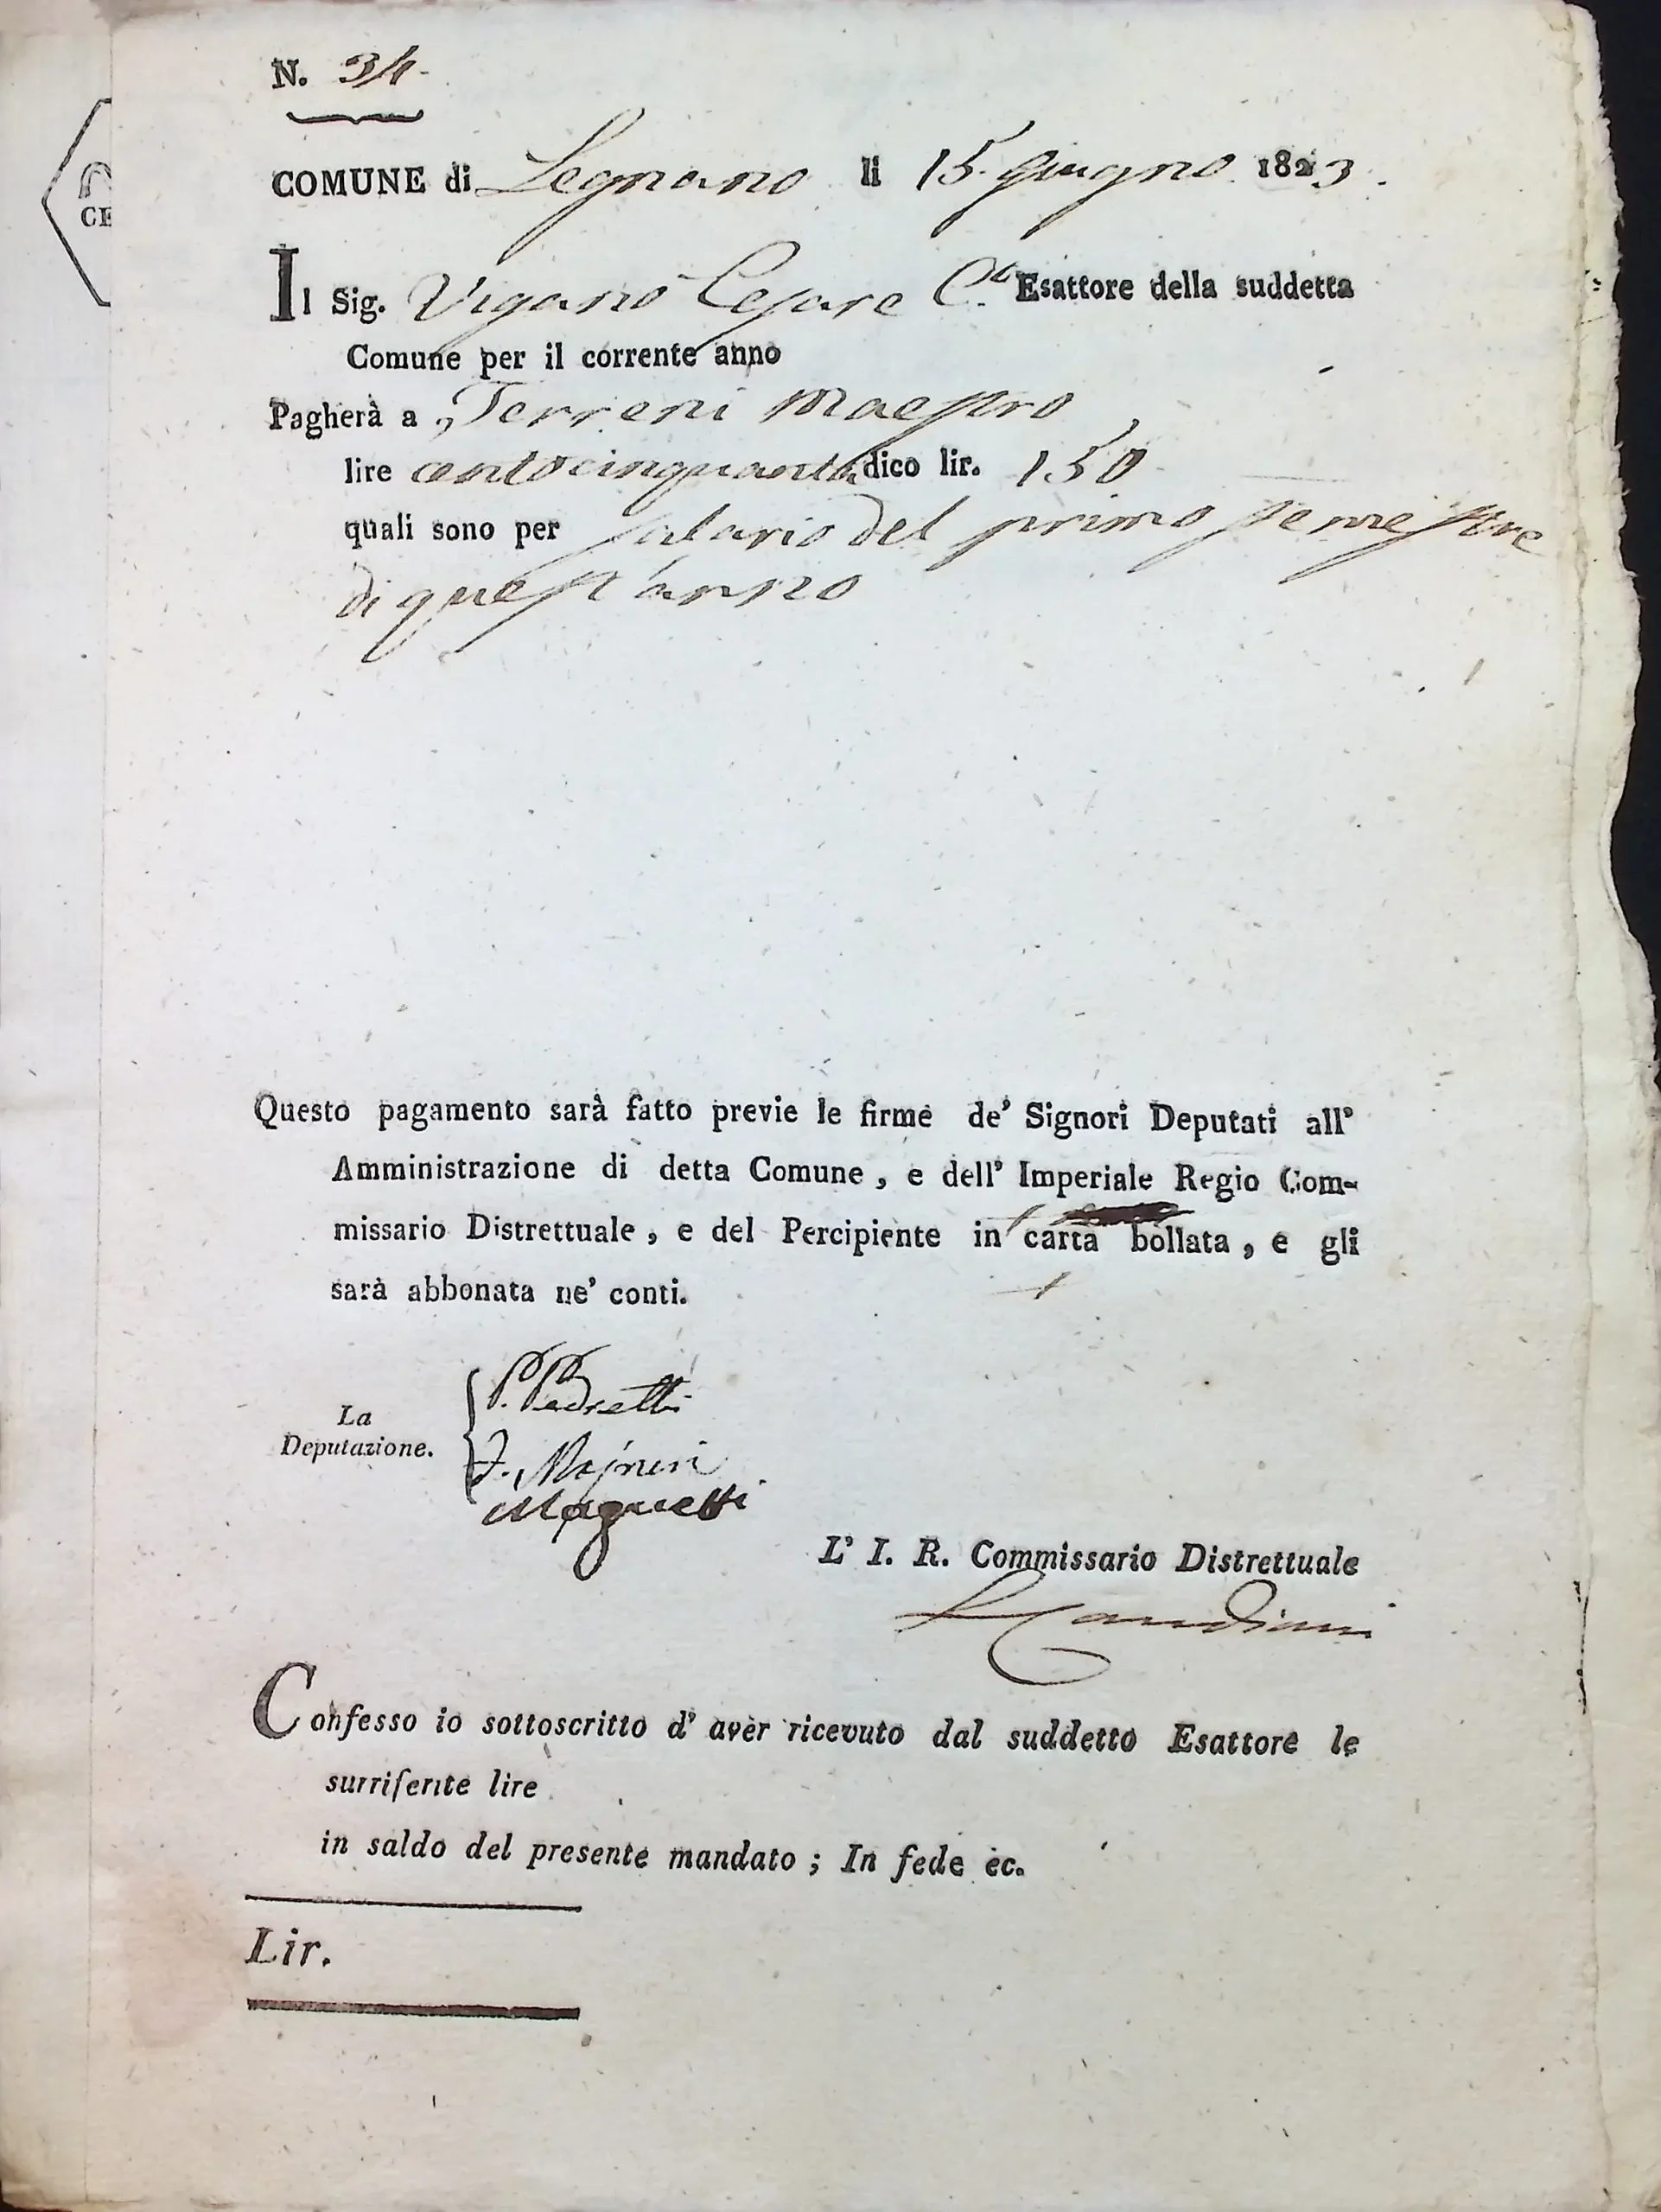 N. 34.
COMUNE di Legnano li 15. Giugno 1823.
CE
Il Sig. Viganò Cesare C.e Esattore della suddetta
Comune per il corrente anno
Pagherà a Terreni Maestro
lire centocinquanta dico lir. 150
quali sono per salario del primo semestre
di quest'anno
Questo pagamento sarà fatto previe le firme de' Signori Deputati all'
Amministrazione di detta Comune, e dell' Imperiale Regio Com-
missario Distrettuale, e del Percipiente in carta bollata, e gli
sarà abbonata ne' conti.
La
Deputazione.
P. Pedretti
L' I. R. Commissario Distrettuale
Confesso io sottoscritto d' aver ricevuto dal suddetto Esattore le
surriferite lire
in saldo del presente mandato; In fede ec.
Lir.